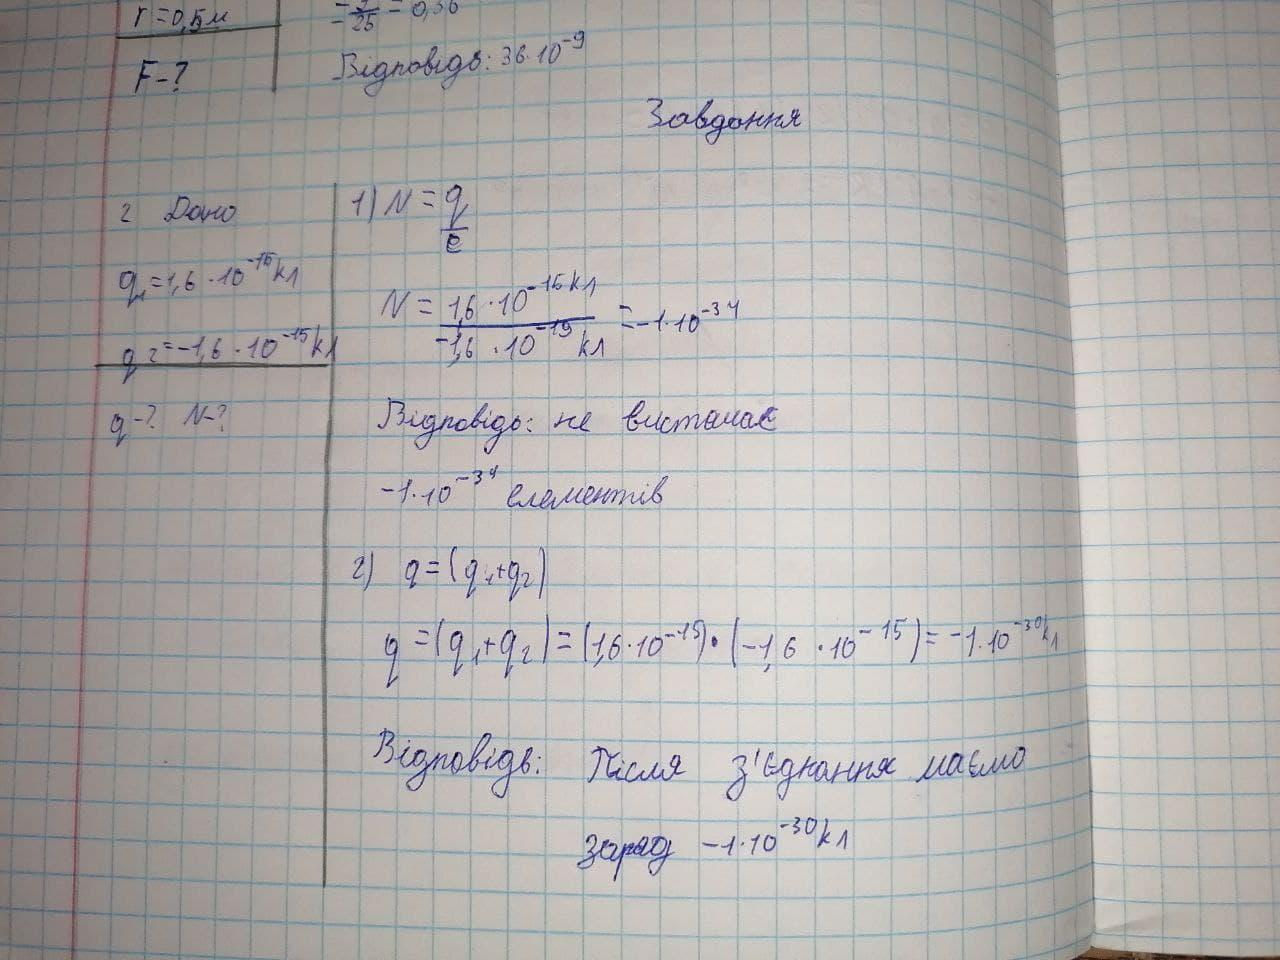 r = 0,5м
F - ?
Відповідь: 36·10⁻⁹
Завдання
2 Дано
q₁ = 1,6·10⁻¹⁵кл
q₂ = -1,6·10⁻¹⁵кл
q - ? N - ?
1) N = q/e
N = 1,6·10⁻¹⁵кл / -1,6·10⁻¹⁹кл = -1·10⁻³⁴
Відповідь: не вистачає
-1·10⁻³⁴ елементів
2) q = (q₁+q₂)
q = (q₁+q₂) = (1,6·10⁻¹⁵)·(-1,6·10⁻¹⁵) = -1·10⁻³⁰кл
Відповідь: Після з'єднання маємо
заряд -1·10⁻³⁰кл